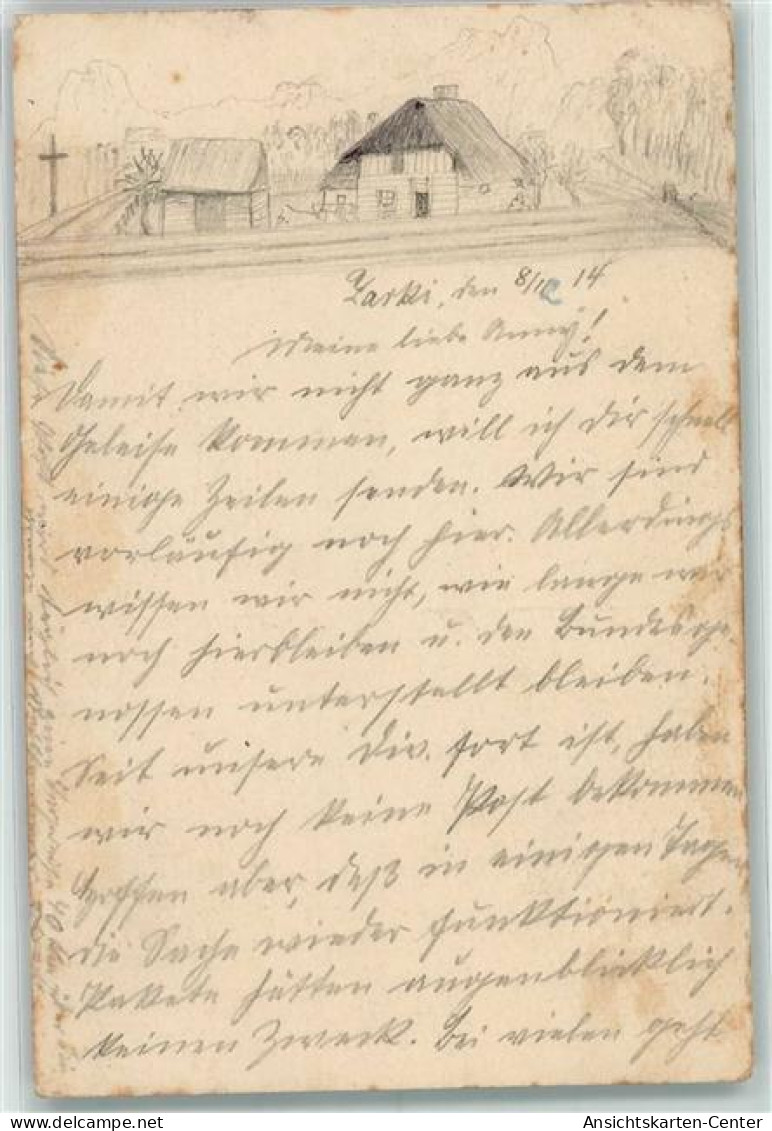 Zarki, den 8/12 14
Meine liebe Anny!
Damit wir nicht ganz aus dem
Geleise kommen, will ich dir schnell
einige Zeilen senden. Wir sind
vorläufig noch hier. Allerdings
wissen wir nicht, wie lange wir
noch hierbleiben u. den Bundesge-
nossen unterstellt bleiben.
Seit unsere Div. fort ist, haben
wir noch keine Post bekommen
hoffen aber, daß in einigen Tagen
die Sache wieder funktioniert.
Pakete hätten augenblicklich
keinen Zweck. Bei vielen geht
delcampe.net
Ansichtskarten-Center